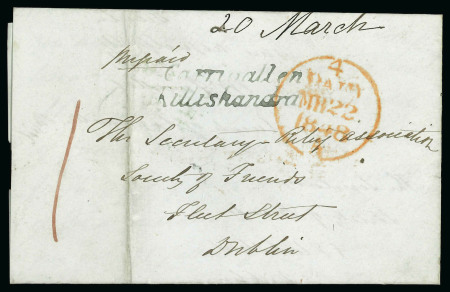 20 March
Prepaid
Carrigallen
Killishandra
4
PAID
MR 22
1848
1
The Secretary Relief Association
Society of Friends
Fleet Street
Dublin